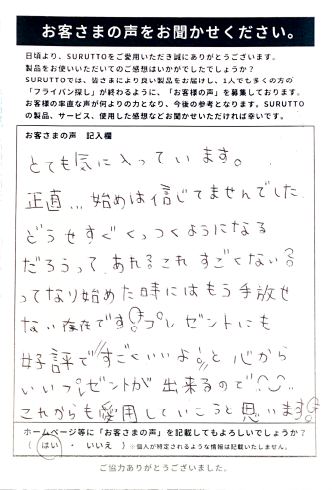 お客さまの声をお聞かせください。
日頃より、SURUTTOをご愛用いただき誠にありがとうございます。
製品をお使いいただいてのご感想はいかがでしたでしょうか？
SURUTTOでは、皆さまにより良い製品をお届けし、1人でも多くの方の
「フライパン探し」が終わるように、「お客様の声」を募集しております。
お客様の率直な声が何よりの力となり、今後の参考となります。SURUTTO
の製品、サービス、使用した感想などお聞かせいただければ幸いです。
お客さまの声 記入欄
とても気に入っています。
正直... 始めは信じてませんでした。
どうせすぐくっつくようになる
だろうって。あれ?これすごくない?
ってなり始めた時にはもう手放せ
ない存在です!プレゼントにも
好評で"すごくいいよ!"と心から
いいプレゼントが出来るので♡^^..
これからも愛用していこうと思います!
ホームページ等に「お客さまの声」を記載してもよろしいでしょうか？
はい ・ いいえ ）※個人が特定されるような情報は記載いたしません。
ご協力ありがとうございました。